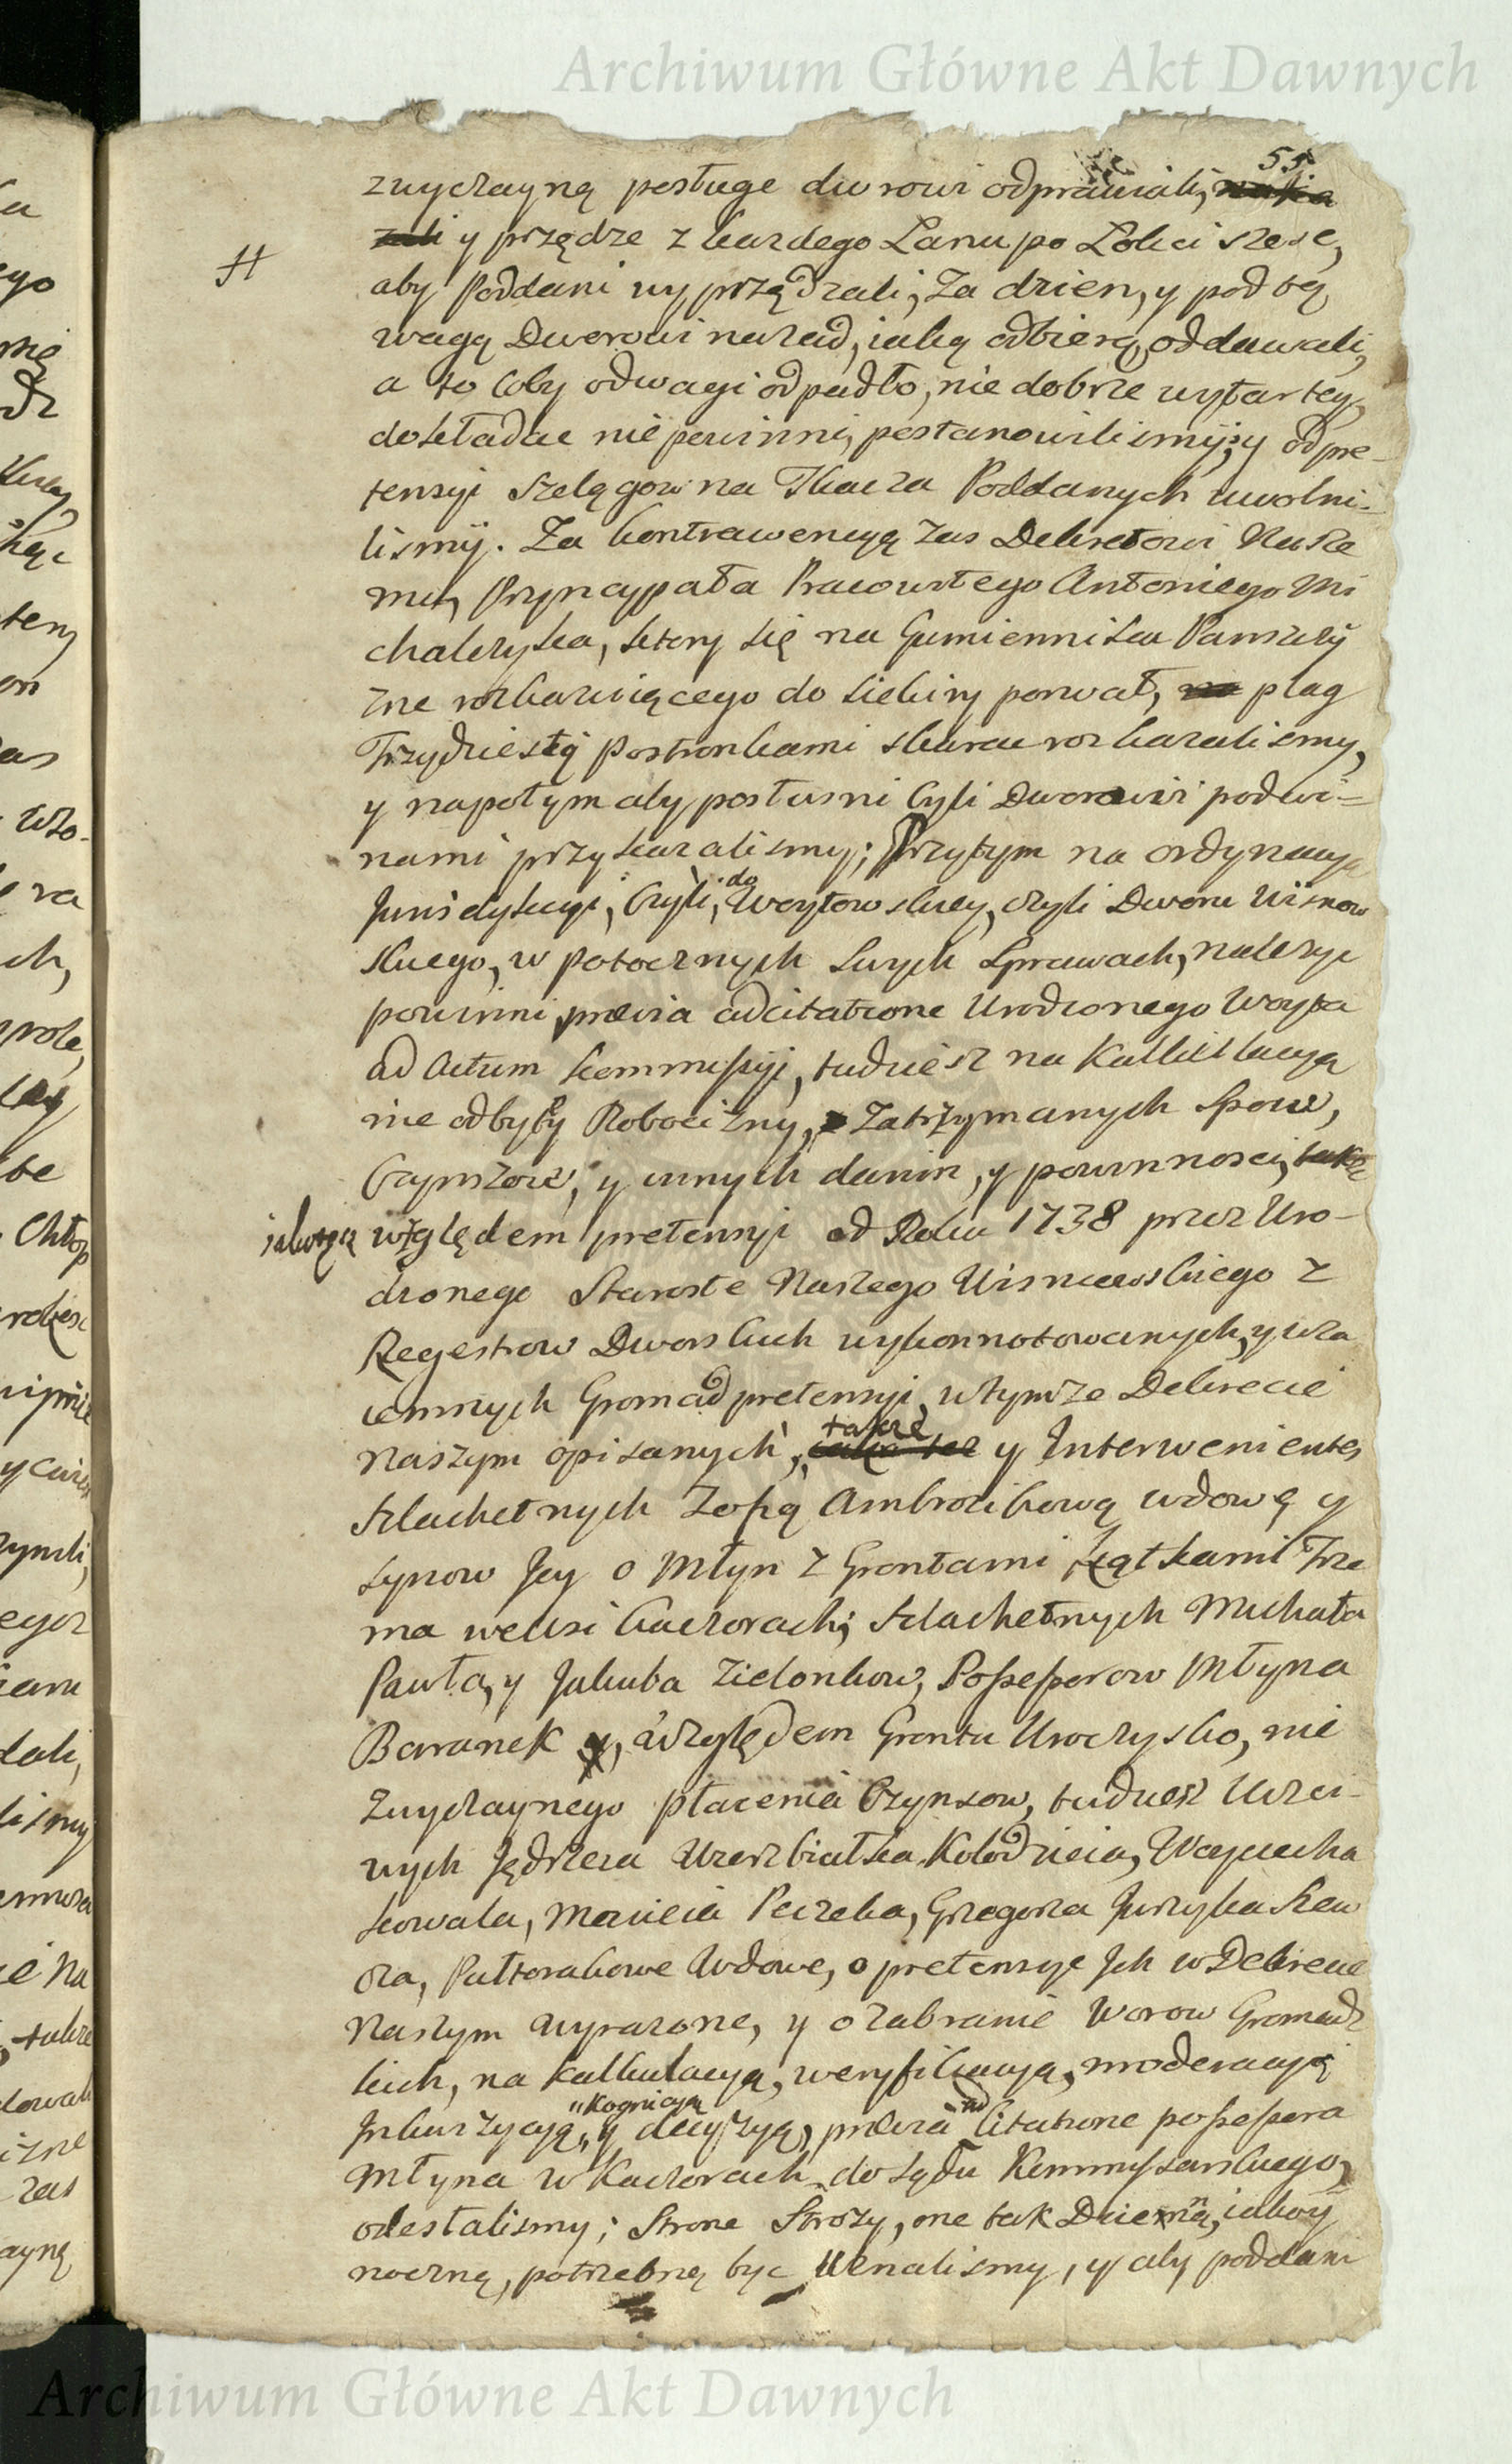 Archiwum Główne Akt Dawnych
55.
zwyczayną posługe dworowi odprawiali,
y przędze z kazdego Łanu po Łokci szesc,
H
aby Poddani wyprzędzali, Za dzien, y pod tą
wagą Dworowi nazad, iaką odbierą, oddawali,
a to coby od wagi odpadło, nie dobrze wytartey,
dokładac nie powinni, postanowilismy; y od pre-
tensyi Szelągow na Tkacza Poddanych uwolni-
lismy. Za kontrawencyą zas Dekretowi Nasze
mu, Pryncypała Pracowitego Antoniego Mi
chalczyka, ktory się na Gumiennika Panszczy
zne rozkazuiącego do siekiry porwał, plag
Trzydziestą Postronkami skarac rozkazalismy,
y napotym aby posłusni byli Dworowi pod wi=
nami przykazalismy; Przytym na ordynacyą
Jurisdykcyi, Czyli, do Woytowskiey, czyli Dworu Wisniow
skiego, w potocznych swych Sprawach, nalezyc
powinni, prævia adcitatione Urodzonego Woyta
ad Actum Kommissyi, tudziesz na Kalkulacyą
nie odbyty Robocizny, Zatrzymanych Spow,
Czynszow, y innych danin, y powinnosci,
iakoteż względem pretensyi od Roku 1738 przez Uro-
dzonego Staroste Naszego Wisniewskiego z
Regestrow Dworskich wykonnotowanych, y wza
iemnych Gromad pretensyi, w tymze Dekrecie
Naszym opisanych, także y Interwenientes
Szlachetnych Zofią Ambrozikową wdową y
synow Jey o Młyn z Grontami Łątkami Trze
ma we wsi Kaczorach; Szlachetnych Michała
Pawła, y Jakuba Zielonkow, Possessorow Młyna
Baranek, względem Grontu Uroczysko, nie
zwyczaynego płacenia Czynszow, tudziesz Uczci-
wych Jędrzeia Wierzbiałka Kołodzieia, Woyciecha
Kowala, Macieia Peczeka, Grzegorza Jurzyka Szew
cza, Pułtorakowe Wdowe, o pretensye Jch w Dekrecie
Naszym wyrazone, y o zabranie Worow Gromadz
kich, na Kalkulacyą, weryfikacyą, moderacyą
Jnkwizycyą, "Kognicyą y decyzyą, prævia ad Citatione possessora
Młyna w Kaczorach, do Sądu Kommyssarskiego,
odesłalismy; Strone Strozy, one tak Dzienną, iakoy
nocną, potrzebną byc uznalismy, y aby poddani
Archiwum Główne Akt Dawnych